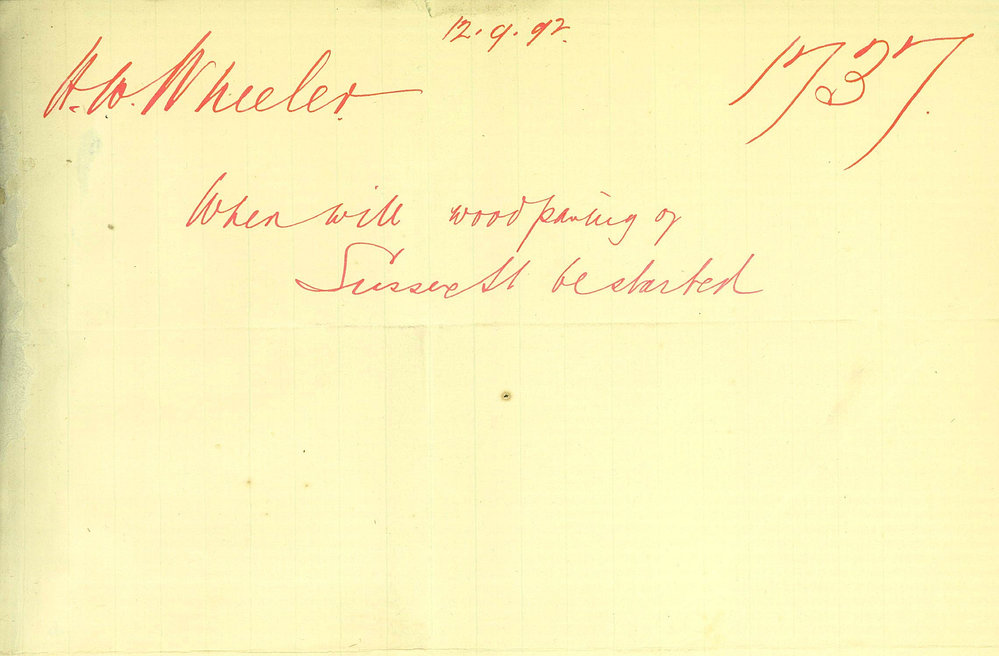 12.9.92.
H. W. Wheeler 1737.
When will wood paving of
Sussex St be started